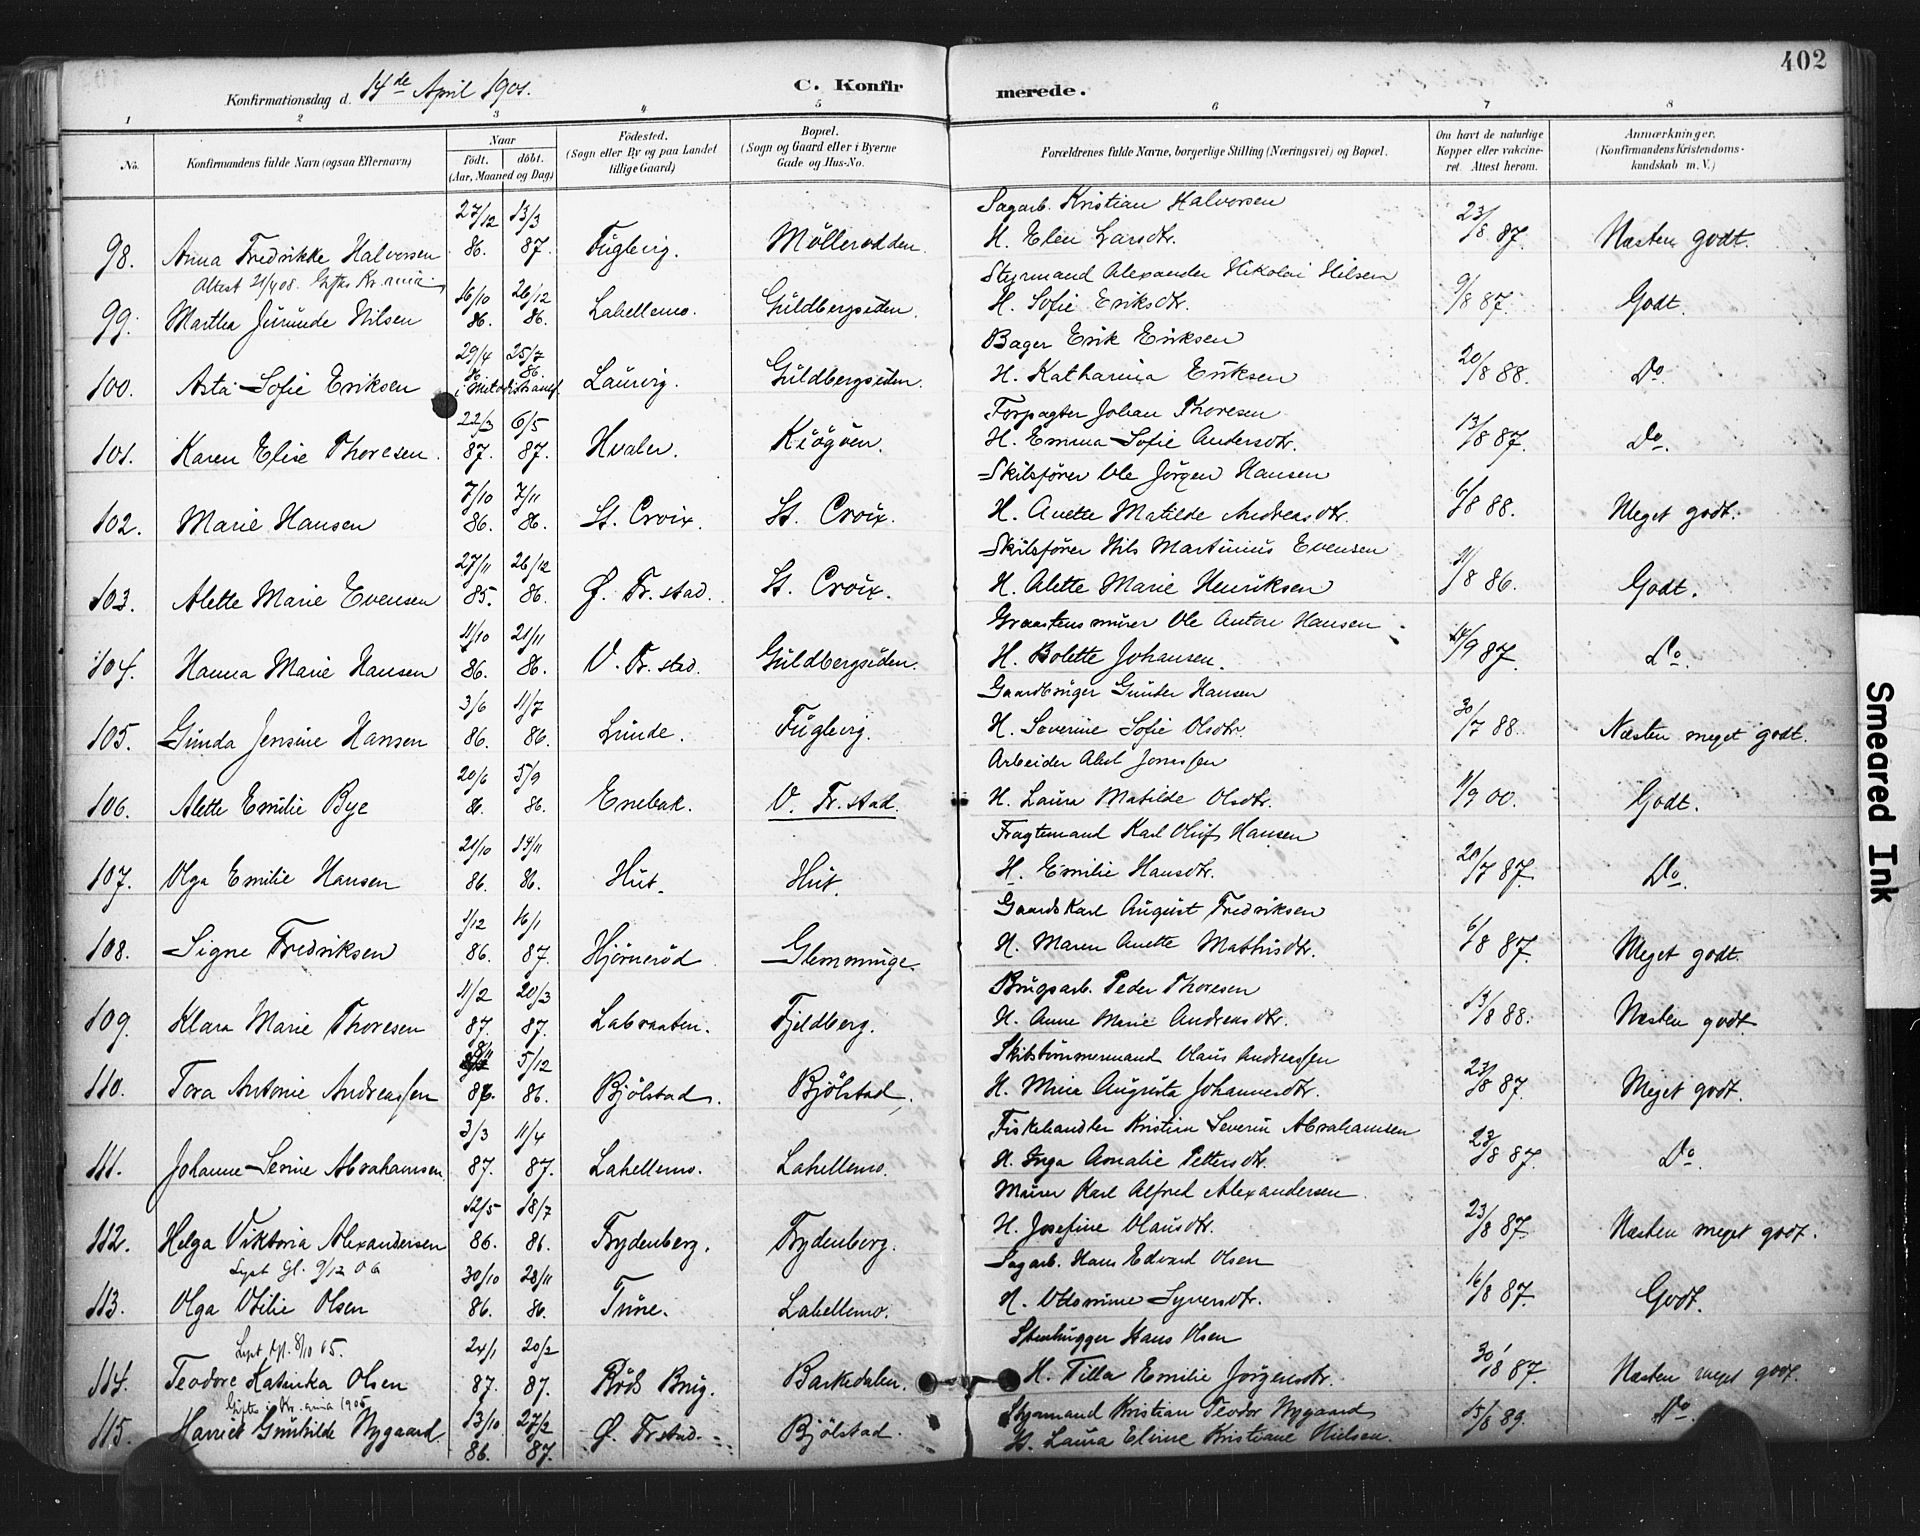 402
Konfirmationsdag d. 14de April 1901. C. Konfirmerede.
1 2 3 4 5 6 7 8
No. Konfirmandens fulde Navn (ogsaa Efternavn) Naar født. døbt. (Aar, Maaned og Dag) Fødested. (Sogn eller By og paa Landet tillige Gaard) Bopæl. (Sogn og Gaard eller i Byerne Gade og Hus-No. Forældrenes fulde Navne, borgerlige Stilling (Næringsvei) og Bopæl. Om havt de naturlige Kopper eller vakcineret. Attest herom. Anmærkninger. (Konfirmandens Kristendomskundskab m. V.)
27/12 13/3 Sagarb. Kristian Halvorsen
98. Anna Fredrikke Halvorsen 86. 87. Fuglevig. Møllerodden H. Elen Larsdtr. 23/8 87. Næsten godt.
Attest 21/4 08. Giftes Kr.ania
16/10 26/12 Styrmand Alexander Nikolai Nilsen
99. Martha Jurunde Nilsen 86. 86. Lahellemo. Guldbergsiden. H. Sofie Eriksdtr. 9/8 87. Godt.
29/4 25/7 Bager Erik Eriksen
100. Asta-Sofie Eriksen 86. 86. i Metodistsamf. Laurvig. Guldbergsiden. H. Katharina Eriksen 20/8 88. Do
22/3 6/5 Forpagter Johan Thoresen
101. Karen Elise Thoresen. 87. 87. Hvaler. Kiøgøen. H. Emma-Sofie Andersdtr. 13/8 87. Do.
7/10 7/11 Skibsfører Ole Jørgen Hansen
102. Marie Hansen 86. 86. St. Croix. St. Croix. H. Anette Matilde Andreasdtr. 6/8 88. Meget godt.
27/11 26/12 Skibsfører Nils Martinius Evensen
103. Alette Marie Evensen 85. 86. Ø. Fr.stad. St. Croix. H. Alette Marie Henriksen /8 86. Godt.
11/10 21/11 Graastensmurer Ole Anton Hansen
104. Hanna Marie Hansen 86. 86. V. Fr.stad. Guldbergsiden. H. Bolette Johansen. /9 87. Do.
3/6 11/7 Gaardbruger Gunder Hansen
105. Gunda Jensine Hansen 86. 86. Lunde. Fuglevig. H. Severine Sofie Olsdtr. 30/7 88. Næsten meget godt.
20/6 5/9 Arbeider Abel Jonssen
106. Alette Emilie Bye 86. 86. Enebak. V. Fr.stad. H. Laura Matilde Olsdtr. 11/9 00. Godt.
21/10 14/11 Fragtemand Karl Oluf Hansen
107. Olga Emilie Hansen 86. 86. Hut. Hut. H. Emilie Hansdtr. 20/7 87. Do.
1/12 16/1 Gaardskarl August Fredriksen
108. Signe Fredriksen 86. 87. Hjørnerød Glemminge. H. Maren Anette Mathisdtr. 6/8 87. Meget godt.
11/2 20/3 Brugsarb. Peder Thoresen
109. Klara Marie Thoresen 87. 87. Labraaten. Fjeldberg. H. Anne Marie Andreasdtr. 13/8 88. Næsten godt
8/11 5/12 Skibstømmermand Olaus Andreassen
110. Tora Antonie Andreassen 86. 86. Bjølstad. Bjølstad. H. Mina Augusta Johannesdtr. 23/8 87. Meget godt.
3/3 11/4 Fiskehandler Kristian Severin Abrahamsen
111. Johanne-Serine Abrahamsen. 87. 87. Lahellemo. Lahellemo. H. Inga Amalie Pettersdtr. 23/8 87. Do.
12/5 18/7 Murer Karl Alfred Alexandersen.
112. Helga Viktoria Alexandersen 86. 86. Frydenberg. Frydenberg. H. Josefine Olausdtr. 23/8 87. Næsten meget godt.
Lyst Gl. 9/12 06
30/10 28/11 Sagarb. Hans Edvard Olsen
113. Olga Otilie Olsen 86. 86. Tune. Lahellemo. H. Syversdtr. 16/8 87. Godt.
Lyst Gl. 8/10 05.
24/1 20/2 Stenhugger Hans Olsen
114. Teodore Katinka Olsen 87. 87. Røds Brug. Barkedalen. H. Tilla Emilie Jørgensdtr. 30/8 87. Næsten meget godt.
Giftes i Kr.ania 1906
13/10 27/2 Styrmand Kristian Teodor Nygaard
115. Harriet Gunhilde Nygaard. 86. 87. Ø. Frstad. Bjølstad. H. Laura Elvine Kristiane Nielsen. 15/8 89. Do.
Smeared Ink